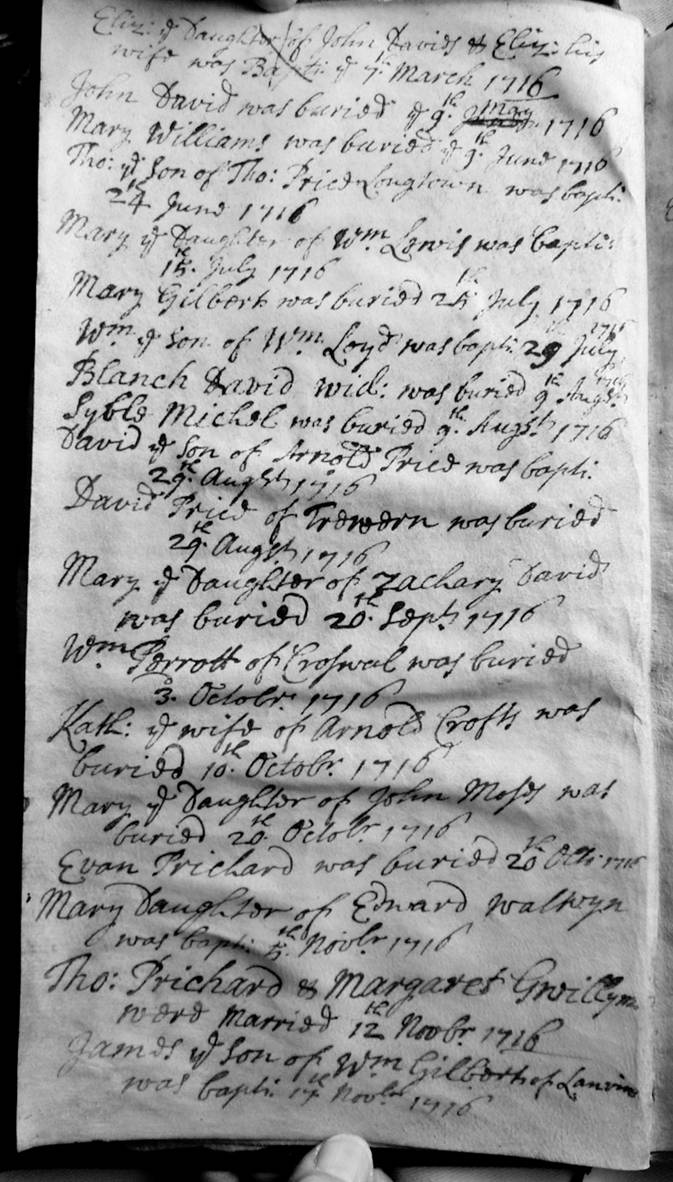 Eliz: ye Daughter of John Davids & Eliz: his
wife was Bapti: ye 7th March 1716
John David was buried ye 9th May 1716
Mary Williams was buried ye 9th June 1716
Tho: ye Son of Tho: Price Longtown was bapti:
24th June 1716
Mary ye Daughter of Wm Lewis was bapti:
15th July 1716
Mary Gilbert was buried 25th July 1716
Wm ye Son of Wm Loyd was bapti. 29 July 1716
Blanch David wid: was buried 9th Augst
Syble Michel was buried 9th Augst 1716
David ye Son of Arnold Price was bapti:
29th Augst 1716
David Price of Trewern was buried
29th Augst 1716
Mary ye Daughter of Zachary David
was buried 20th Sept 1716
Wm Perrott of Croswal was buried
3d Octobr 1716
Kath: ye wife of Arnold Crofts was
buried 10th Octobr. 1716
Mary ye Daughter of John Moses was
buried 20th Octobr 1716
Evan Prichard was buried 20th Octr 1716
Mary Daughter of Edward Walwyn
was bapti: 5th Novbr 1716
Tho: Prichard & Margaret Gwillym
were Married 12th Novbr 1716
James ye Son of Wm Gilbert of
was bapti: 17th Novbr 1716